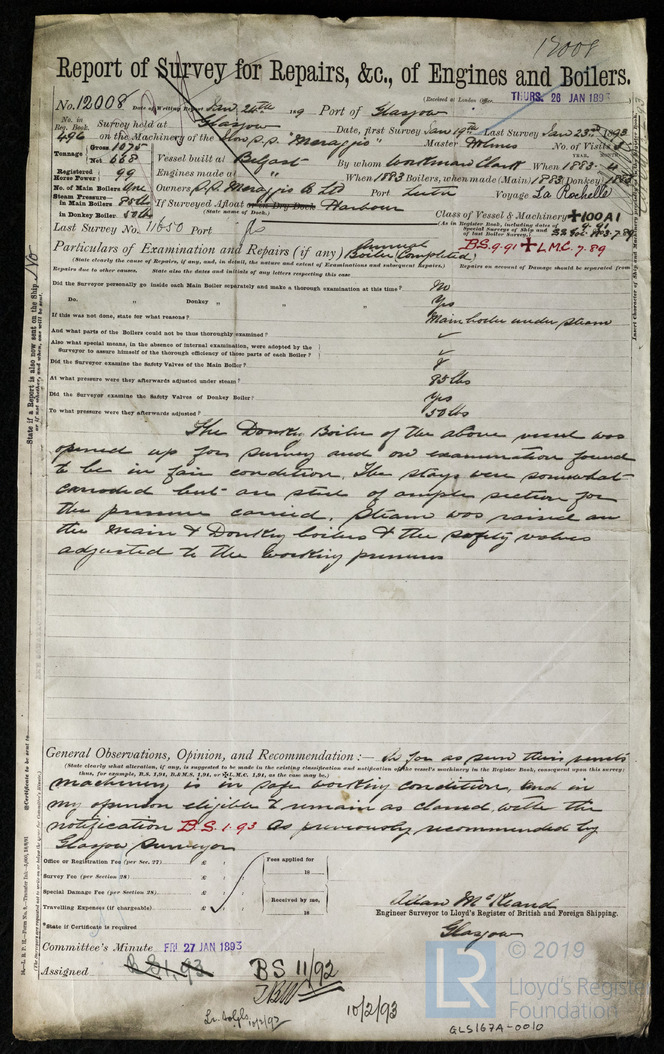 12008
Report of Survey for Repairs, &c., of Engines and Boilers.
(Received at London Office THURS. 26 JAN 1893
No. 12008 Date of Writing Report Jan 24th 189 Port of Glasgow
No. in Reg. Book. 496 Survey held at Glasgow Date, first Survey Jan 19th Last Survey Jan 23rd 1893
on the Machinery of the S.S. "Meraggio" Master Holmes No. of Visits
Tonnage Gross 1075 Net 668 Vessel built at Belfast By whom Workman Clark When 1883
Registered Horse Power 99 Engines made at When 1883 Boilers, when made (Main) 1883 (Donkey) 1883
No. of Main Boilers One Owners S.S. Meraggio Co Ltd Port Leith Voyage La Rochelle
Steam Pressure in Main Boilers 85 lbs If Surveyed Afloat or in Dry Dock Harbour
in Donkey Boiler 50 lbs (State name of Dock.) Class of Vessel & Machinery ✠100A1
(As in Register Book, including dates of Special Surveys of Ship and of last Boiler Survey.)
Last Survey No. 11650 Port Gls B.S. 9.91 ✠ L.M.C. 7.89
Particulars of Examination and Repairs (if any) Annual Boiler (Completed)
(State clearly the cause of Repairs, if any, and, in detail, the nature and extent of Examinations and subsequent Repairs.) Repairs on account of Damage should be separated from
Repairs due to other causes. State also the dates and initials of any letters respecting this case
Did the Surveyor personally go inside each Main Boiler separately and make a thorough examination at this time? No
Do. " Donkey " " " Yes
If this was not done, state for what reasons? Main boiler under steam
And what parts of the Boilers could not be thus thoroughly examined? ✓
Also what special means, in the absence of internal examination, were adopted by the
Surveyor to assure himself of the thorough efficiency of those parts of each Boiler? ✓
Did the Surveyor examine the Safety Valves of the Main Boiler?
At what pressure were they afterwards adjusted under steam? 85 lbs
Did the Surveyor examine the Safety Valves of Donkey Boiler? Yes
To what pressure were they afterwards adjusted? 50 lbs
The Donkey Boiler of the above vessel was
opened up for survey and on examination found
to be in fair condition. The stays were somewhat
corroded but are still of ample section for
the pressure carried. Steam was raised on
the Main & Donkey boilers & the safety valves
adjusted to the working pressures
General Observations, Opinion, and Recommendation:— In so far as seen this vessel's
(State clearly what alteration, if any, is suggested to be made in the existing classification and notification of the vessel's machinery in the Register Book, consequent upon this survey;
thus, for example, B.S. 1,91, B.&M.S. 1,91, or ✠L.M.C. 1,91, as the case may be.)
machinery is in safe working condition, and in
my opinion eligible to remain as classed, with the
notification B.S. 1.93 as previously recommended by
Glasgow Surveyor
Office or Registration Fee (per Sec. 27) £ : : Fees applied for
Survey Fee (per Section 28) £ : : 18
Special Damage Fee (per Section 28) £ : : Received by me,
Travelling Expenses (if chargeable) £ : : 18
*State if Certificate is required
Engineer Surveyor to Lloyd's Register of British and Foreign Shipping.
Glasgow
Committee's Minute FRI. 27 JAN 1893
Assigned B.S 1.93 BS 11/92
10/2/93
10/2/93
State if a Report is also now sent on the Ship No
© 2019
LR
Lloyd's Register
Foundation
GLS167A-0010